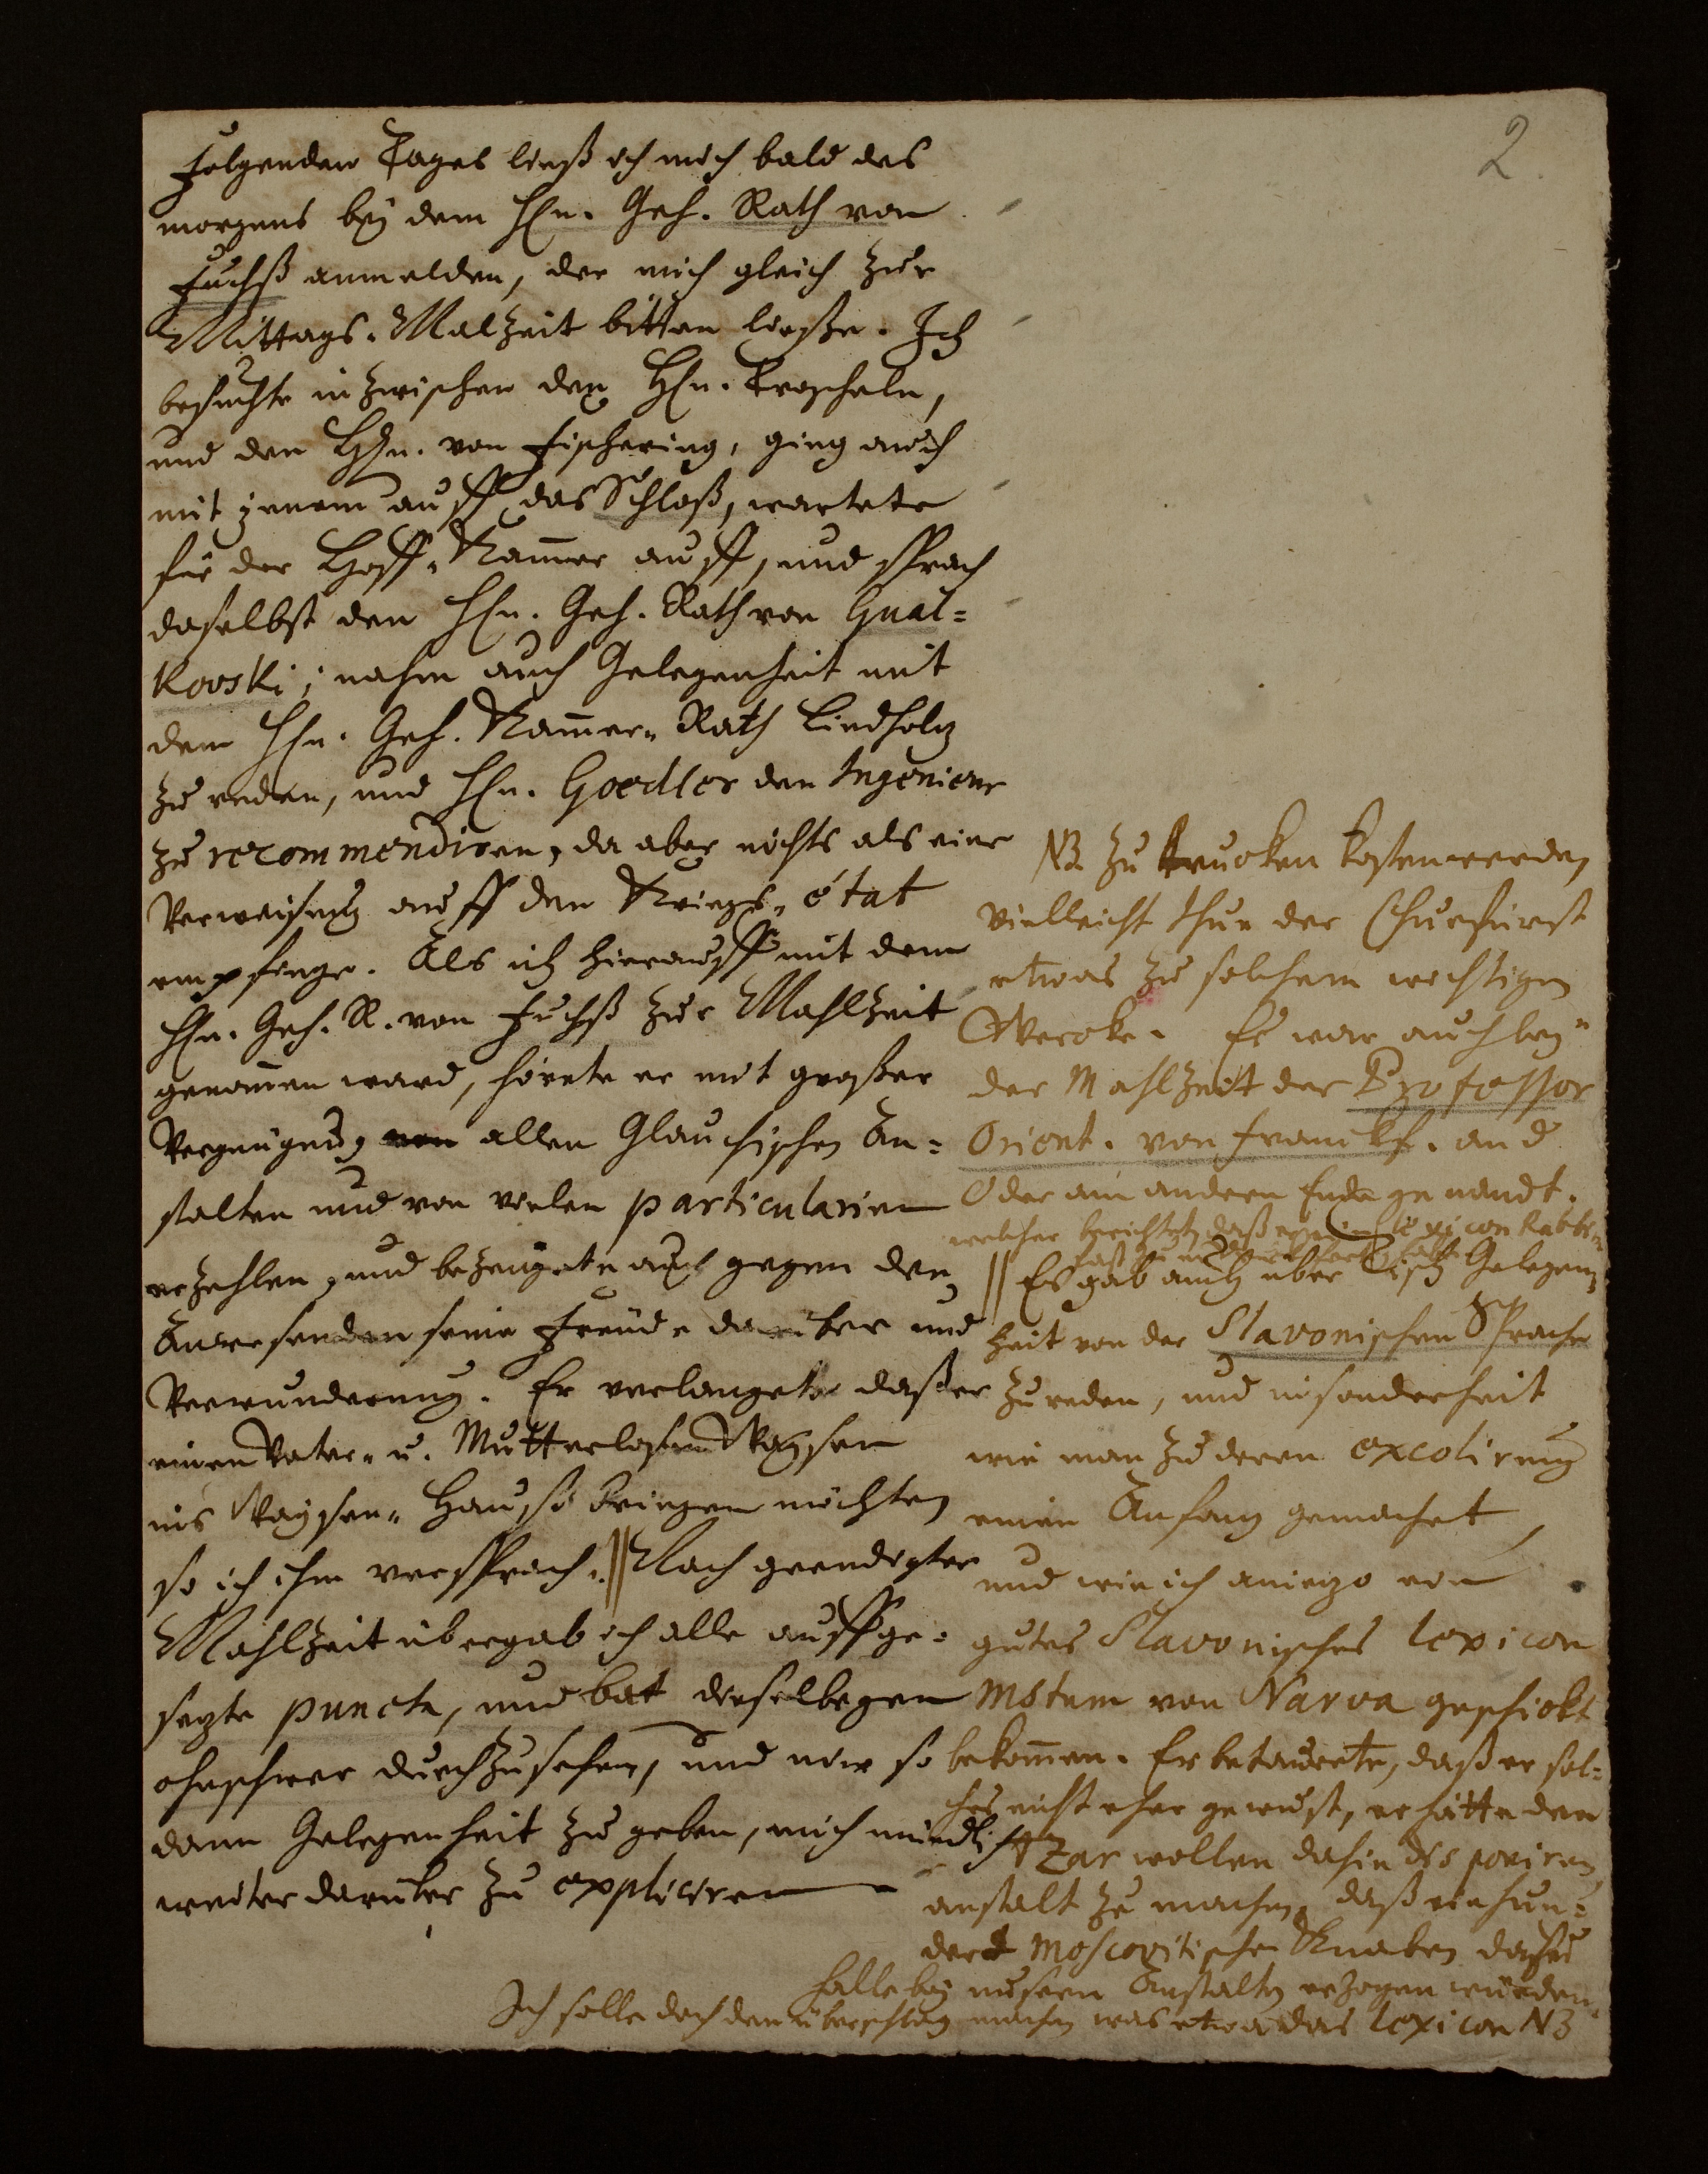 2
Folgenden Tages ließ ich mich bald des
morgens bey dem Hn. Geh. Rath von
Fuchß anmelden, der mich gleich zur
Mittags-Malzeit bitten ließe. Ich
besuchte inzwischen den Hn. Troscheln,
und den Hn. von Fischering, ging auch
mit jenem auff das Schloß, wartete
für der Hoff-Kam̃er auff, und sprach
daselbst den Hn. Geh. Rath von Gnal=
kovski; nahm auch Gelegenheit mit
dem Hn. Geh. Kam̃er-Rath Lindholtz
zu reden, und Hn. Goedler den Ingenieur
zu recommendiren, da aber nichts als eine
Verweisung auff den Kriegs-état
empfinge. Als ich hierauff mit dem
Hn. Geh. R. von Fuchß zur Mahlzeit
genom̃en ward, hörete er mit großer
Vergnügung allen Glauchischen An=
stalten und von vielen particularien
erzehlen, und bezeugete auch gegen den
Anwesenden seine Freude darüber und
Verwunderung. Er verlangete daß er
einen Vater- u. Mutterlosen Waysen
ins Waysen-Hauß bringen möchte,
so ich ihm versprach. || Nach geendigter
Mahlzeit übergab ich alle auffge=
setzte puncta, und bat dieselbigen
ohnschwer durchzusehen, und mir so
dann Gelegenheit zu geben, mich mündlich
weiter darüber zu expliciren
NB. zu drucken kosten werden
vielleicht thue der Churfürst
etwas zu solchem wichtigen
Wercke. Es war auch bey
der Mahlzeit der Professor
Orient. von Franckf. an d.
Oder am andern Ende genandt.
welcher berichtete, daß er ein lexicon Rabbin.
|| Es gab auch über Tisch Gelegen
heit von der Slavonischen Sprache
zu reden, und insonderheit
wie man zu deren excolirung
einen Anfang gemachet
und wie ich anietzo ein
gutes Slavonisches lexicon
Mstum von Narva geschickt
bekom̃en. Er betaurete, daß er sol=
ches nicht eher gewust, er hätte den
Czar wollen dahin disponiren
anstalt zu machen, daß ein hun=
dert Moscovitische Knaben
Halle bey unsern Anstalten erzogen würden.
Ich solle doch den überschlag machen was etwa das lexicon NB